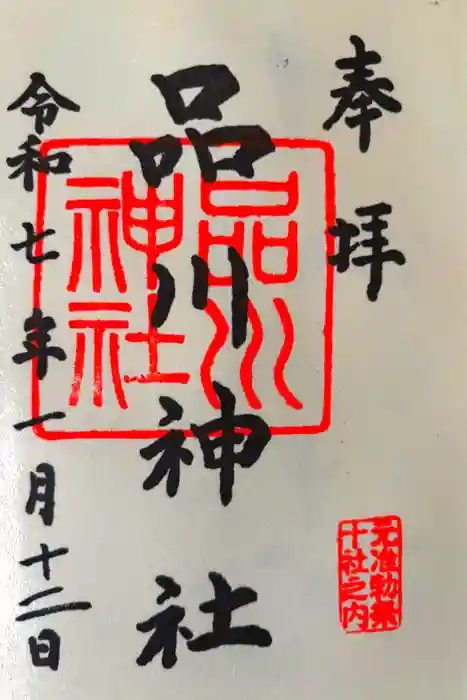 奉拝
品川神社
品川神社
元准勅祭
十社之内
令和七年一月十二日